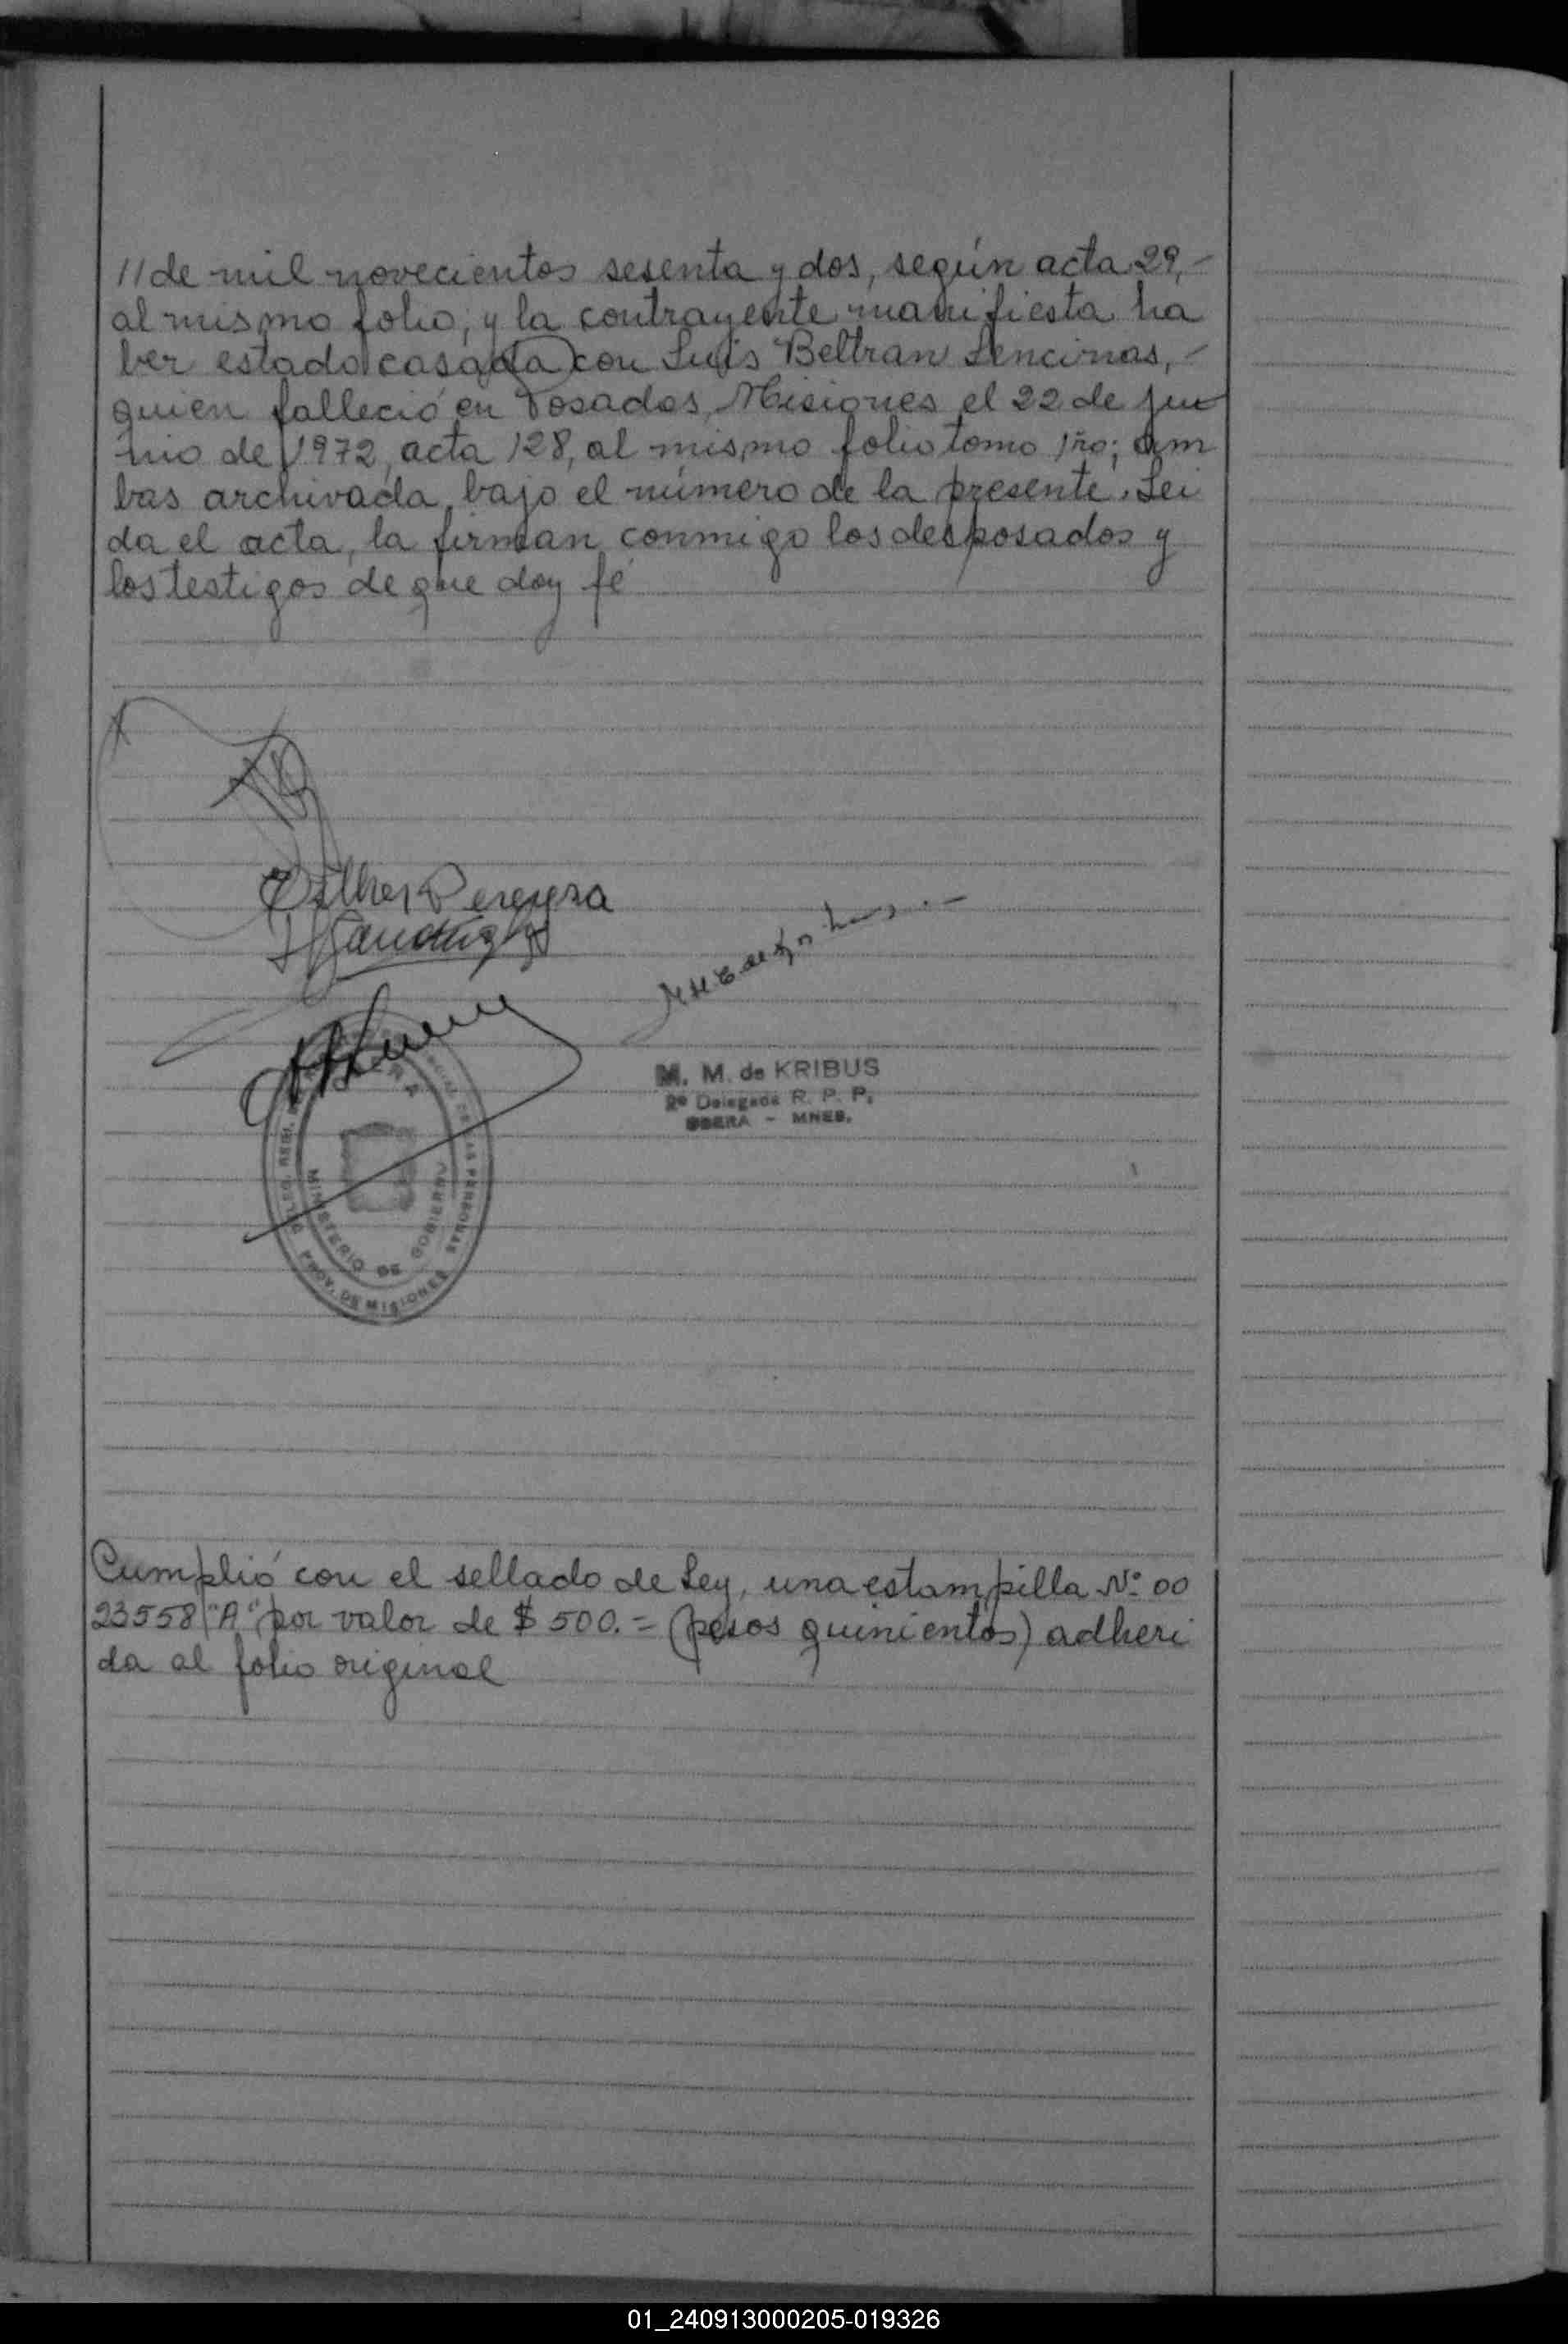 //de mil novecientos sesenta y dos, según acta 29,-
al mismo folio, y la contrayente manifiesta ha
ber estado casada con Luis Beltran Lencinas,-
quien falleció en Posadas, Misiones el 22 de ju
nio de 1972, acta 128, al mismo folio tomo 1ro; am
bas archivada bajo el número de la presente. Lei
da el acta, la firman conmigo los desposados y
los testigos de que doy fé
Esther Pereyra
M. M. de KRIBUS
2º Delegada R. P. P.
OBERA - MNES.
OBERA
MINISTERIO DE GOBIERNO
PROV. DE MISIONES
DE LAS PERSONAS
Cumplió con el sellado de Ley, una estampilla Nº 00
23558 "A" por valor de $ 500.= (pesos quinientos) adheri
da al folio original
01_240913000205-019326